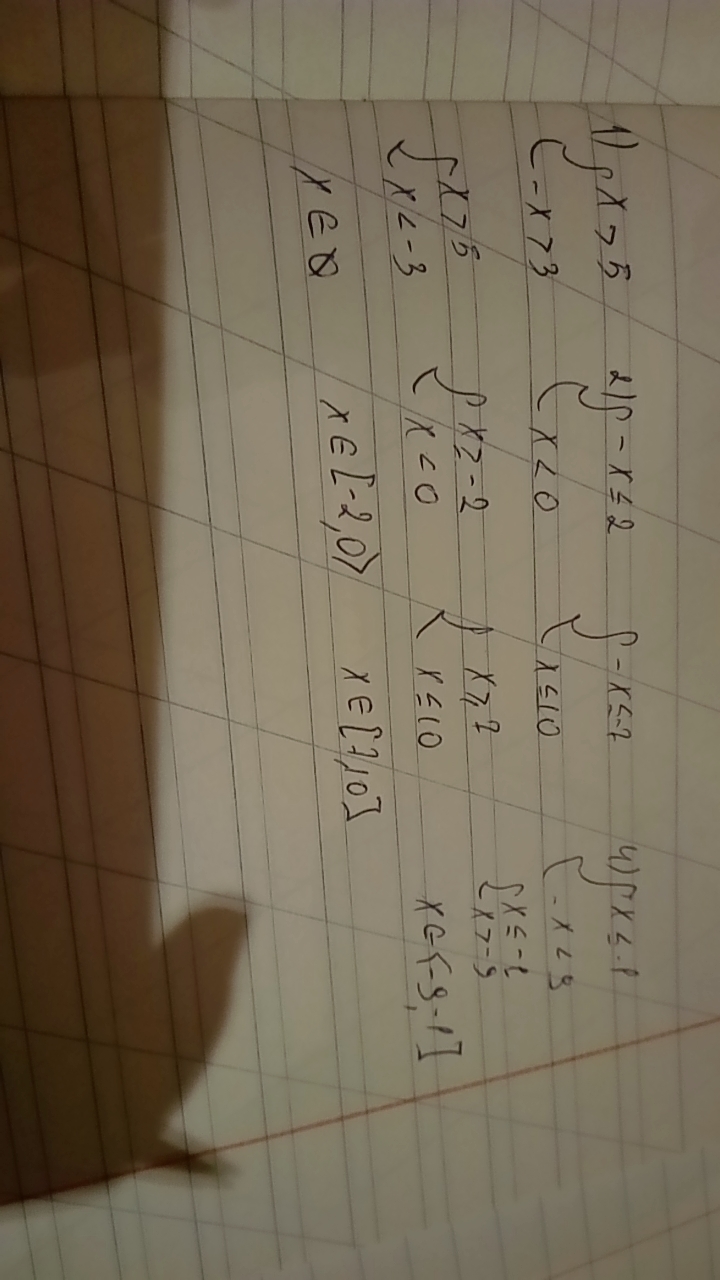 1) { x > 5
{ -x > 3
{ x > 5
{ x < -3
x ∈ ∅
2) { -x ≤ 2
{ x < 0
{ x ≥ -2
{ x < 0
x ∈ [-2, 0)
{ -x ≤ -7
{ x ≤ 10
{ x ≥ 7
{ x ≤ 10
x ∈ [7, 10]
4) { x ≤ -1
{ -x < 9
{ x ≤ -1
{ x > -9
x ∈ (-9, -1]